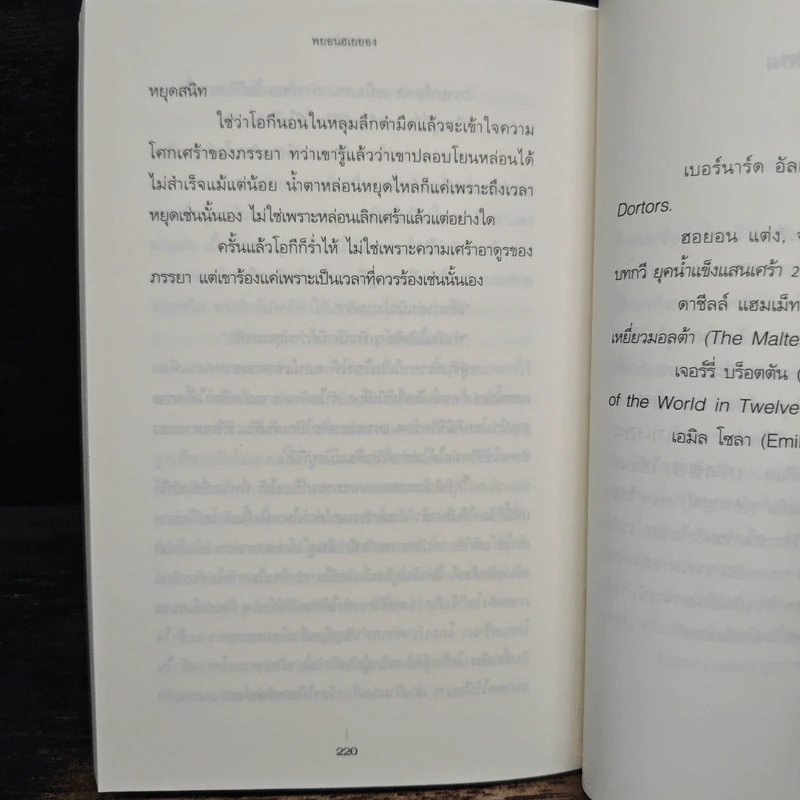 พยอนฮเยยอง
หยุดสนิท
ใช่ว่าโอกีนอนในหลุมลึกดำมืดแล้วจะเข้าใจความ
โศกเศร้าของภรรยา ทว่าเขารู้แล้วว่าเขาปลอบโยนหล่อนได้
ไม่สำเร็จแม้แต่น้อย น้ำตาหล่อนหยุดไหลก็แค่เพราะถึงเวลา
หยุดเช่นนั้นเอง ไม่ใช่เพราะหล่อนเลิกเศร้าแล้วแต่อย่างใด
ครั้นแล้วโอกีก็ร่ำไห้ ไม่ใช่เพราะความเศร้าอาดูรของ
ภรรยา แต่เขาร้องแค่เพราะเป็นเวลาที่ควรร้องเช่นนั้นเอง
220
เบอร์นาร์ด
Dortors.
ฮอยอน แต่ง,
บทกวี ยุคน้ำแข็งแสนเศร้า 2
ดาชีลล์ แฮมเม็ท
เหยี่ยวมอลต้า (The Malte
เจอร์รี่ บร็อตตัน (
of the World in Twelve
เอมิล โซลา (Emil